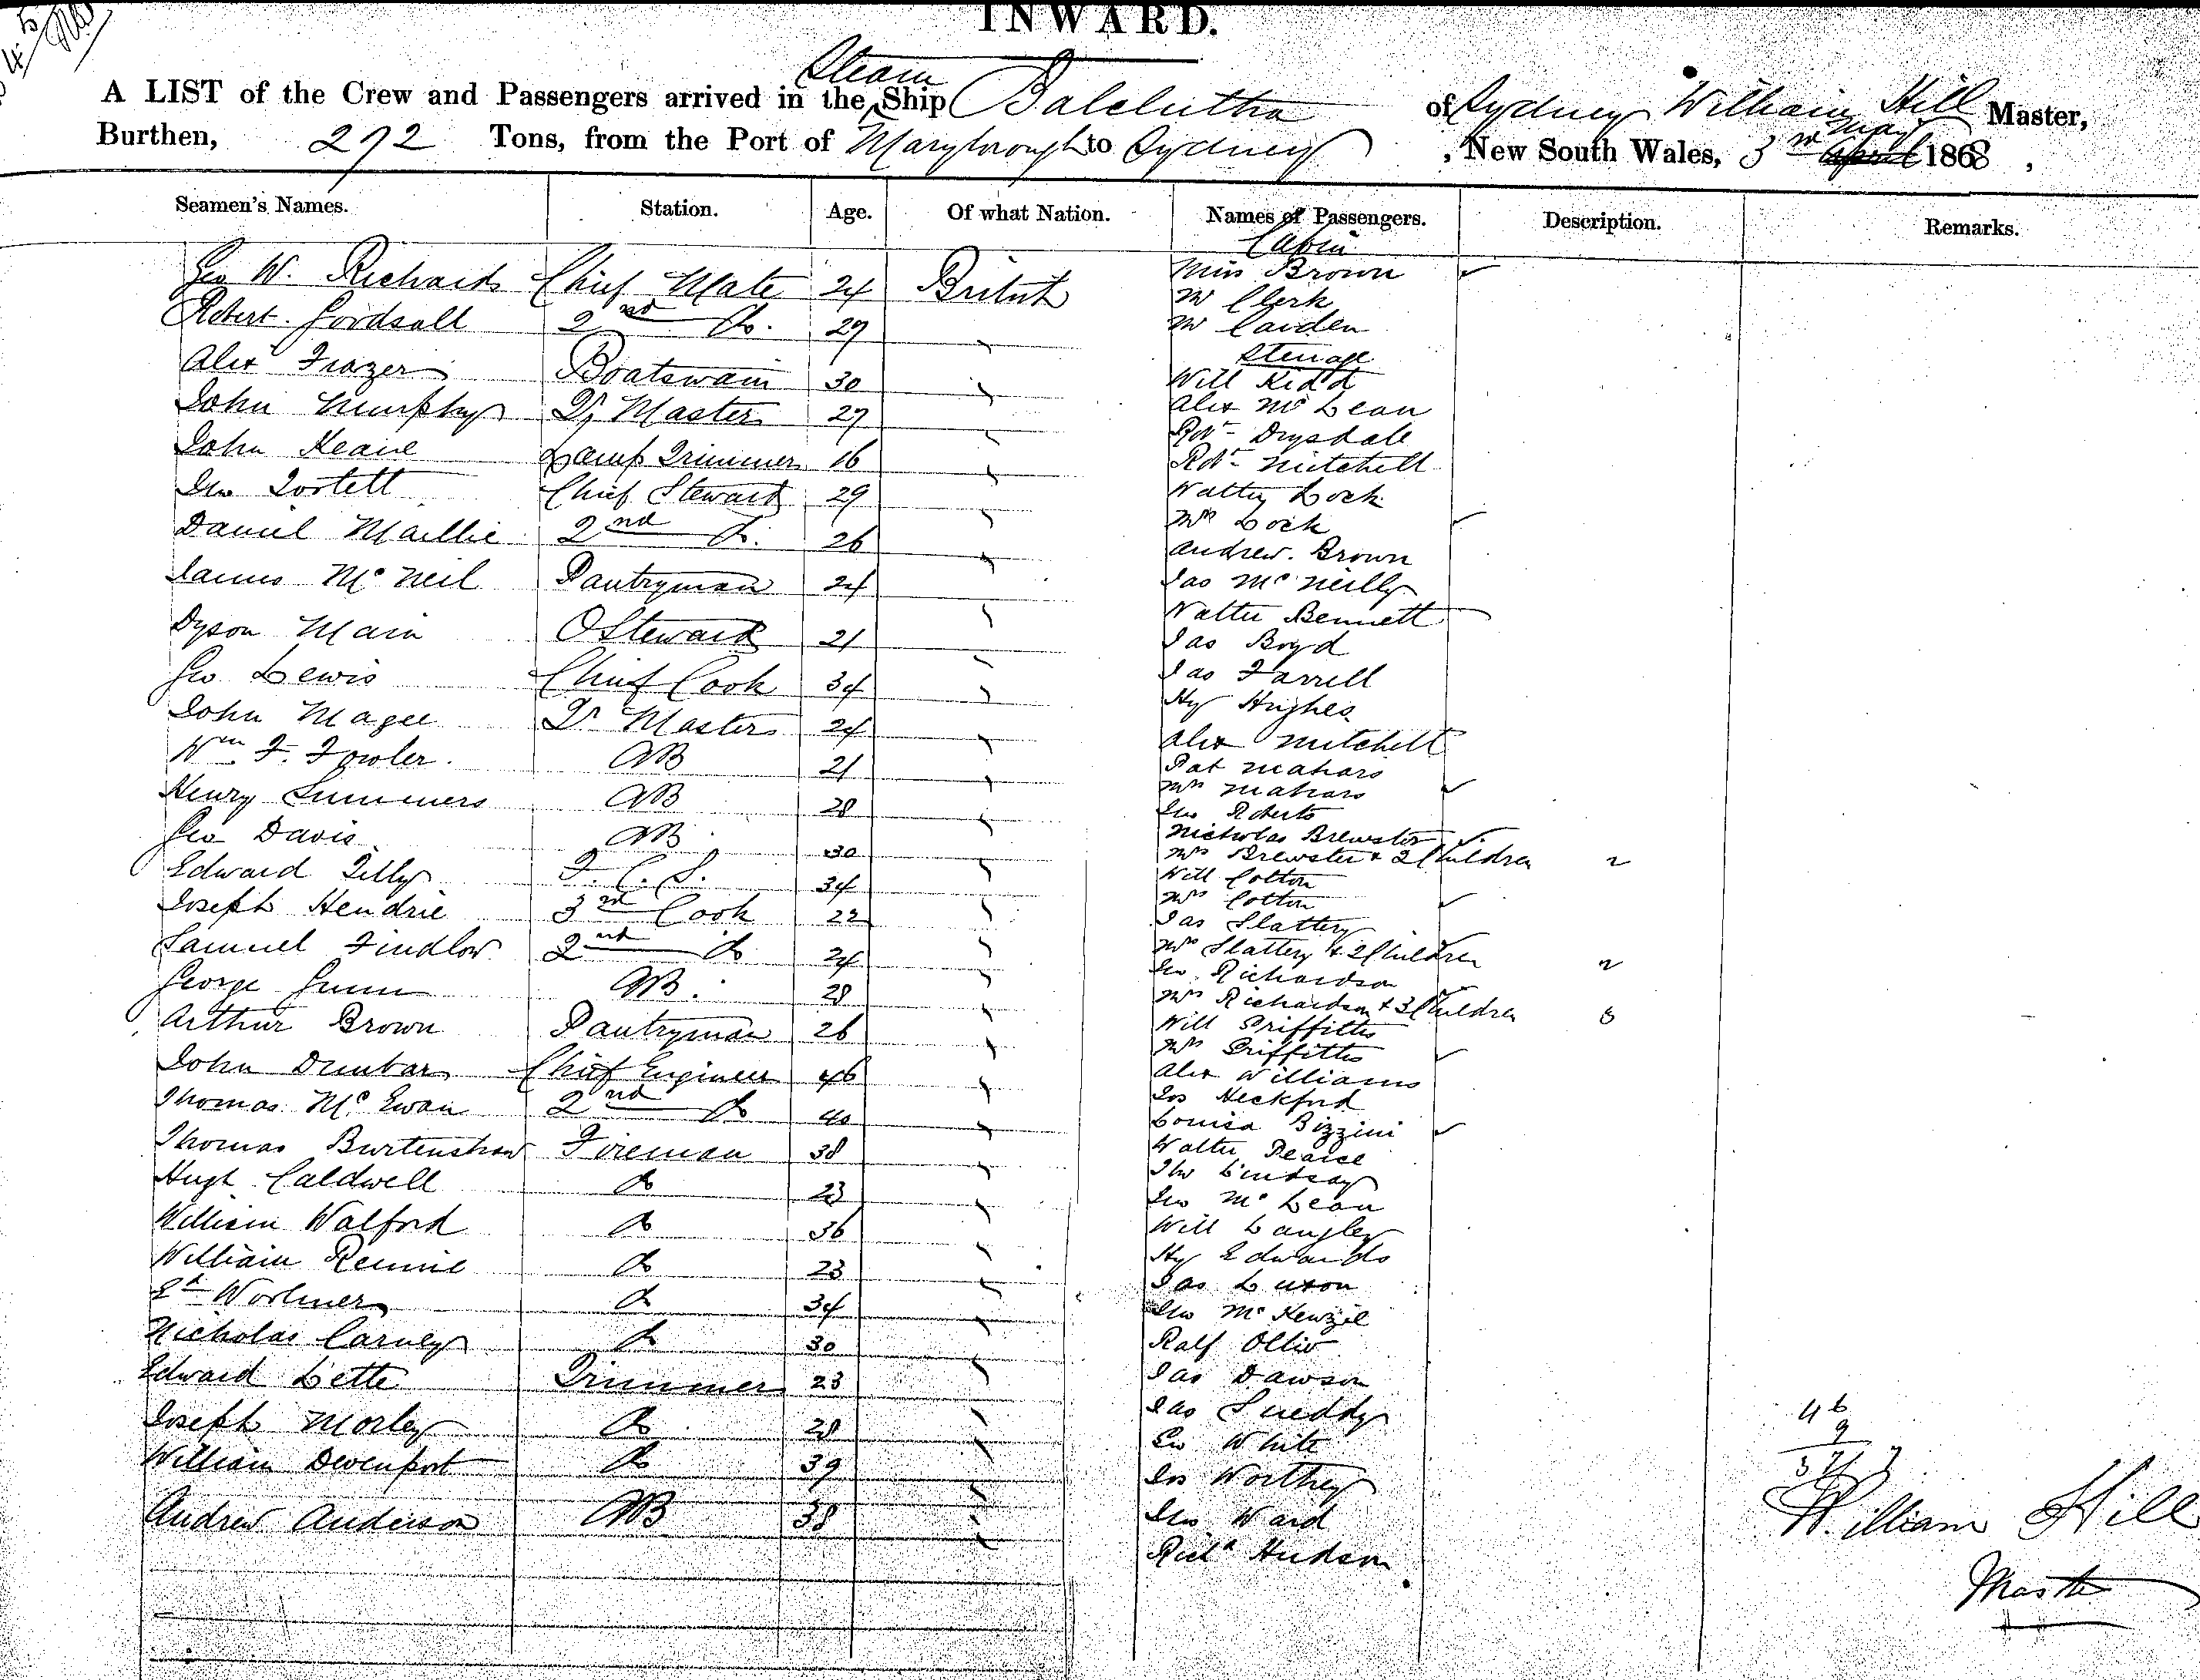 INWARD.
A LIST of the Crew and Passengers arrived in the Steam Ship Balclutha of Sydney William Hill Master,
Burthen, 272 Tons, from the Port of Maryborough to Sydney, New South Wales, 3rd April May 1868,
Seamen's Names. Station. Age. Of what Nation. Names of Passengers. Description. Remarks.
Cabin
Geo W. Richards Chief Mate 24 British
Robert Gordsall 2nd Do. 27
Alex Frazer Boatswain 30
John Murphy Qr Master 27
John Keane Lamp Trimmer 16
Chief Steward 29
Daniel Maillie 2nd Do. 26
James McNeil Pantryman 24
Dyson Main Steward 21
Geo Lewis Chief Cook 34
John Magee Qr Master 24
Wm F. Fowler. AB 21
Henry Summers AB 28
Geo Davis AB 30
Edward Tilly F. C. S. 34
Joseph Hendrie 3rd Cook 22
Samuel Findlow 2nd Do 24
George Gunn AB. 28
Arthur Brown Pantryman 26
John Dunbar Chief Engineer 46
Thomas McEwan 2nd Do 40
Thomas Burtenshaw Fireman 38
Hugh Caldwell Do 23
William Walford Do 36
William Rennie Do 23
Do 34
Nicholas Carney Do 30
Edward Lette Trimmer 23
Joseph Morley Do 28
William Devenport Do 39
Andrew Anderson AB 38
Miss Brown
Mr Clerk
Mr Carden
Steerage
Will Kidd
Alex McLean
Robt Drysdale
Robt Mitchell
Walter Lock
Mrs Lock
Andrew Brown
Jas McNeilly
Walter Bennett
Jas Boyd
Jas Farrell
Hy Hughes
Alex Mitchell
Pat Mahars
Mrs Mahars
Jno Roberts
Nicholas Brewster
Mrs Brewster & 2 Children 2
Will Cotton
Mrs Cotton
Jas Slattery
Mrs Slattery & 2 Children 2
Jno Richardson
Mrs Richardson & 3 Children 3
Will Griffiths
Mrs Griffiths
Alex Williams
Jos Heckford
Louisa Bizzini
Walter Pearce
Tho Lindsay
Jno McLean
Will Langley
Hy Edwards
Jas Luxon
Jno McKenzie
Ralf Olliv
Jas Dawson
Jas
White
Jos Worthey
Jno Ward
Richd Hudson
46
9
William Hill
Master